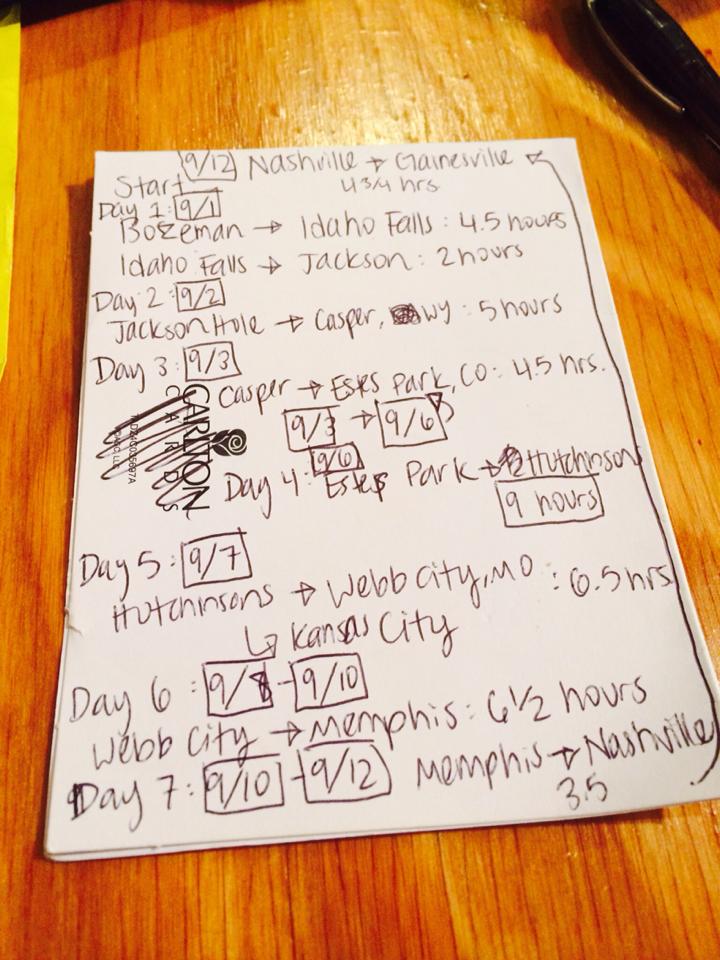 9/12 Nashville → Gainesville
Start 4 3/4 hrs
Day 1: 9/1
Bozeman → Idaho Falls: 4.5 hours
Idaho Falls → Jackson: 2 hours
Day 2: 9/2
Jackson Hole → Casper, WY: 5 hours
Day 3: 9/3
Casper → Estes Park, CO: 4.5 hrs.
9/3 → 9/6
9/6
Day 4: Estes Park → Hutchinson
9 hours
CARLTON
CARDS
Day 5: 9/7
Hutchinsons → Webb City, MO: 6.5 hrs
↳ Kansas City
Day 6: 9/8 - 9/10
Webb City → Memphis: 6 1/2 hours
Day 7: 9/10 - 9/12 Memphis → Nashville
3.5